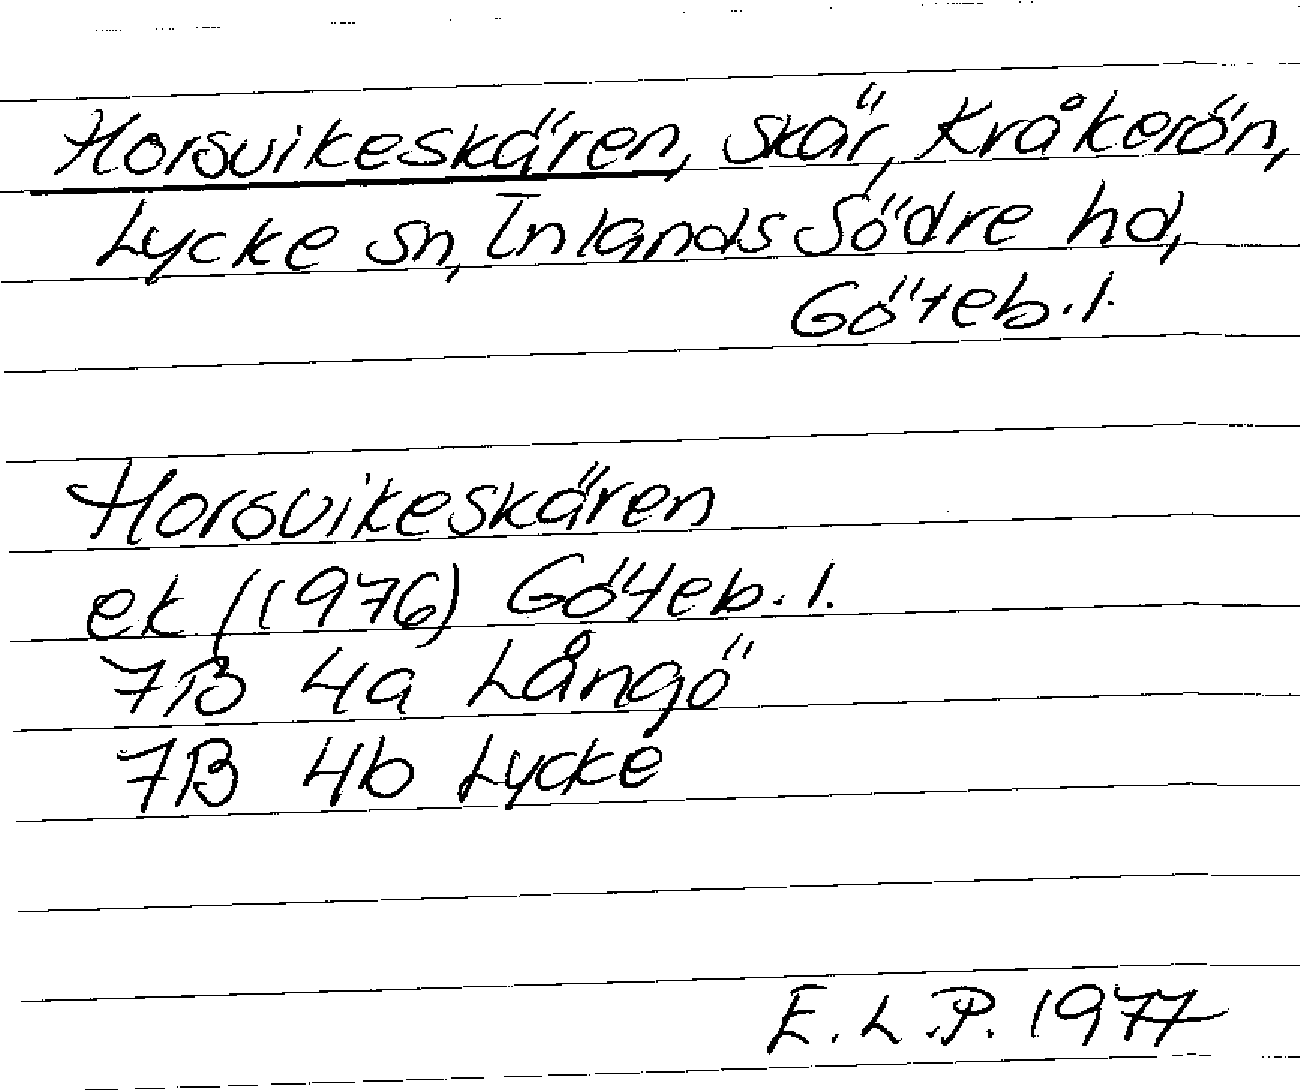 Horsvikeskären, skär, Kråkerön,
Lycke sn, Inlands Södre hd,
Göteb. l.
Horsvikeskären
ek. /(1976) Göteb. l.
7B 4a Långö
7B 4b Lycke
E. L. P. 1977